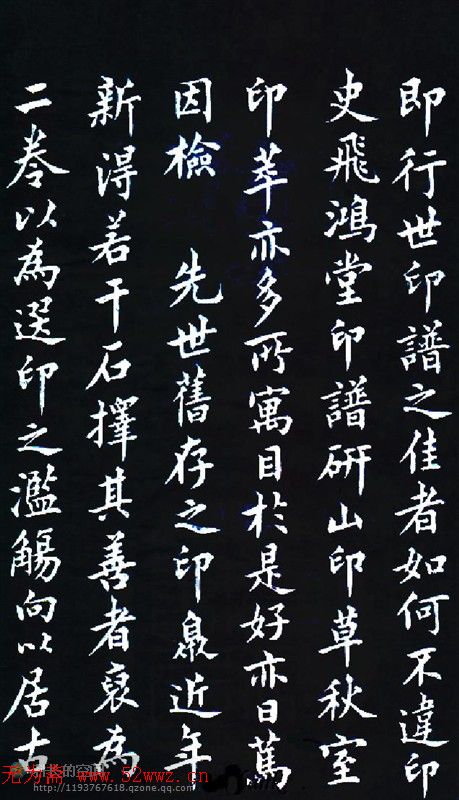 即行世印譜之佳者如何不違印
史飛鴻堂印譜研山印草秋室
印萃亦多所寓目於是好亦日篤
因檢 先世舊存之印暨近年
新得若干石擇其善者裒為
二卷以為選印之濫觴向以居古
无为斋 www.52wwz.cn
的空间
http://1193767618.qzone.qq.com